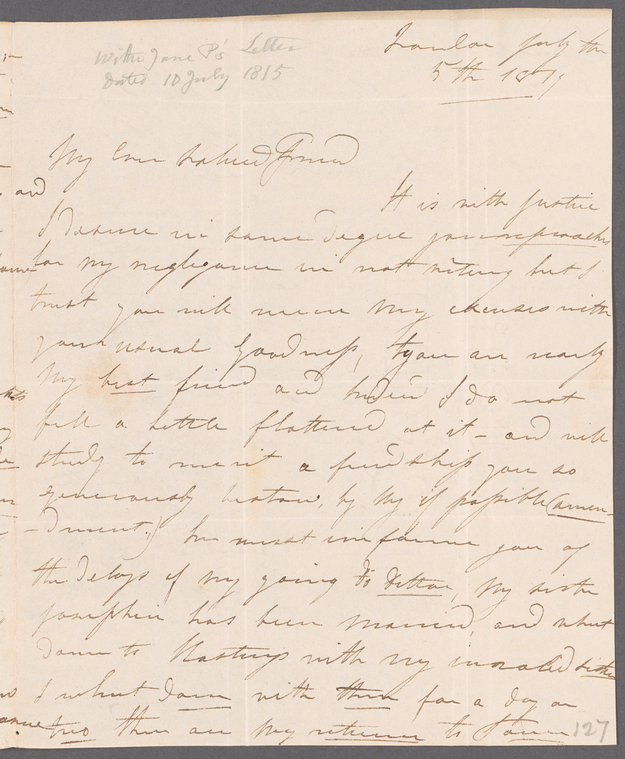 With Jane P's Letter
Dated 10 July 1815
London July the
5th 1819
My Ever valued Friend
It is with Justice
and
I deserve in some degree your reproaches
for my negligence in not writing but I
trust you will receive my excuses with
your usual Goodness, you are really
My best friend and indeed I do not
fell a little flattered at it - and will
study to merit a friendship you so
generously bestow, by My if possible (amen-
-dment.) I must inform you of
the delays of my going to, My sister
Josephine has been married, and whent
down to Hastings with my invalid sister
I whent down with them for a day or
two then on My return to Town
127